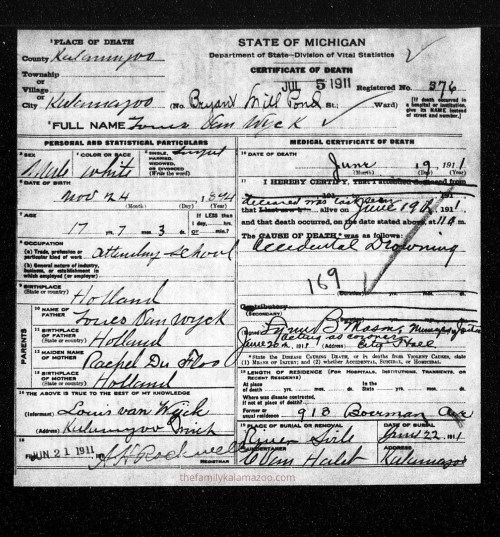 ¹PLACE OF DEATH
County Kalamazoo
Township
or
Village
or
City Kalamazoo
STATE OF MICHIGAN
Department of State—Division of Vital Statistics
CERTIFICATE OF DEATH
JUL 5 1911
Registered No. 376
(No. Bryant Mill Pond St.; Ward)
[If death occurred in a hospital or institution, give its NAME instead of street and number.]
²FULL NAME Louis Van Wyck
PERSONAL AND STATISTICAL PARTICULARS
³SEX
Male
⁴COLOR OR RACE
White
⁵SINGLE, MARRIED, WIDOWED, OR DIVORCED (Write the word)
Single
⁶DATE OF BIRTH
Nov 24
(Month) (Day) (Year)
⁷AGE
17 yrs. 7 mos. 3 ds.
If LESS than
1 day, hrs.
or min.
⁸OCCUPATION
(a) Trade, profession or particular kind of work
attending school
(b) General nature of industry, business, or establishment in which employed (or employer)
⁹BIRTHPLACE
(State or country)
Holland
PARENTS
¹⁰NAME OF FATHER
Louis Van Wyck
¹¹BIRTHPLACE OF FATHER
(State or country)
Holland
¹²MAIDEN NAME OF MOTHER
Rachel Du
¹³BIRTHPLACE OF MOTHER
(State or country)
Holland
¹⁴THE ABOVE IS TRUE TO THE BEST OF MY KNOWLEDGE
(Informant) Louis van Wijck
(Address) Kalamazoo Mich
¹⁵
JUN 21 1911
REGISTRAR
MEDICAL CERTIFICATE OF DEATH
¹⁶DATE OF DEATH
June 19 1911
(Month) (Day) (Year)
¹⁷I HEREBY CERTIFY, That I attended deceased from
deceased was last seen
alive on June 19th, 1911
and that death occurred, on the date stated above, at 11 m.
The CAUSE OF DEATH* was as follows:
Accidental Drowning
169
Contributory
(SECONDARY)
(Signed) Lynn B Mason,
acting as coroner
June 20, 1911 (Address) City Hall
*State the DISEASE CAUSING DEATH, or in deaths from VIOLENT CAUSES, state (1) MEANS OF INJURY; and (2) whether ACCIDENTAL, SUICIDAL, or HOMICIDAL.
¹⁸LENGTH OF RESIDENCE (FOR HOSPITALS, INSTITUTIONS, TRANSIENTS, OR RECENT RESIDENTS)
At place of death yrs. mos. ds. In the State yrs. mos. ds.
Where was disease contracted, if not at place of death?
Former or usual residence 918 Boerman Ave
¹⁹PLACE OF BURIAL OR REMOVAL
DATE OF BURIAL
June 22, 1911
²⁰UNDERTAKER
C Van Halst
ADDRESS
Kalamazoo
thefamilykalamazoo.com